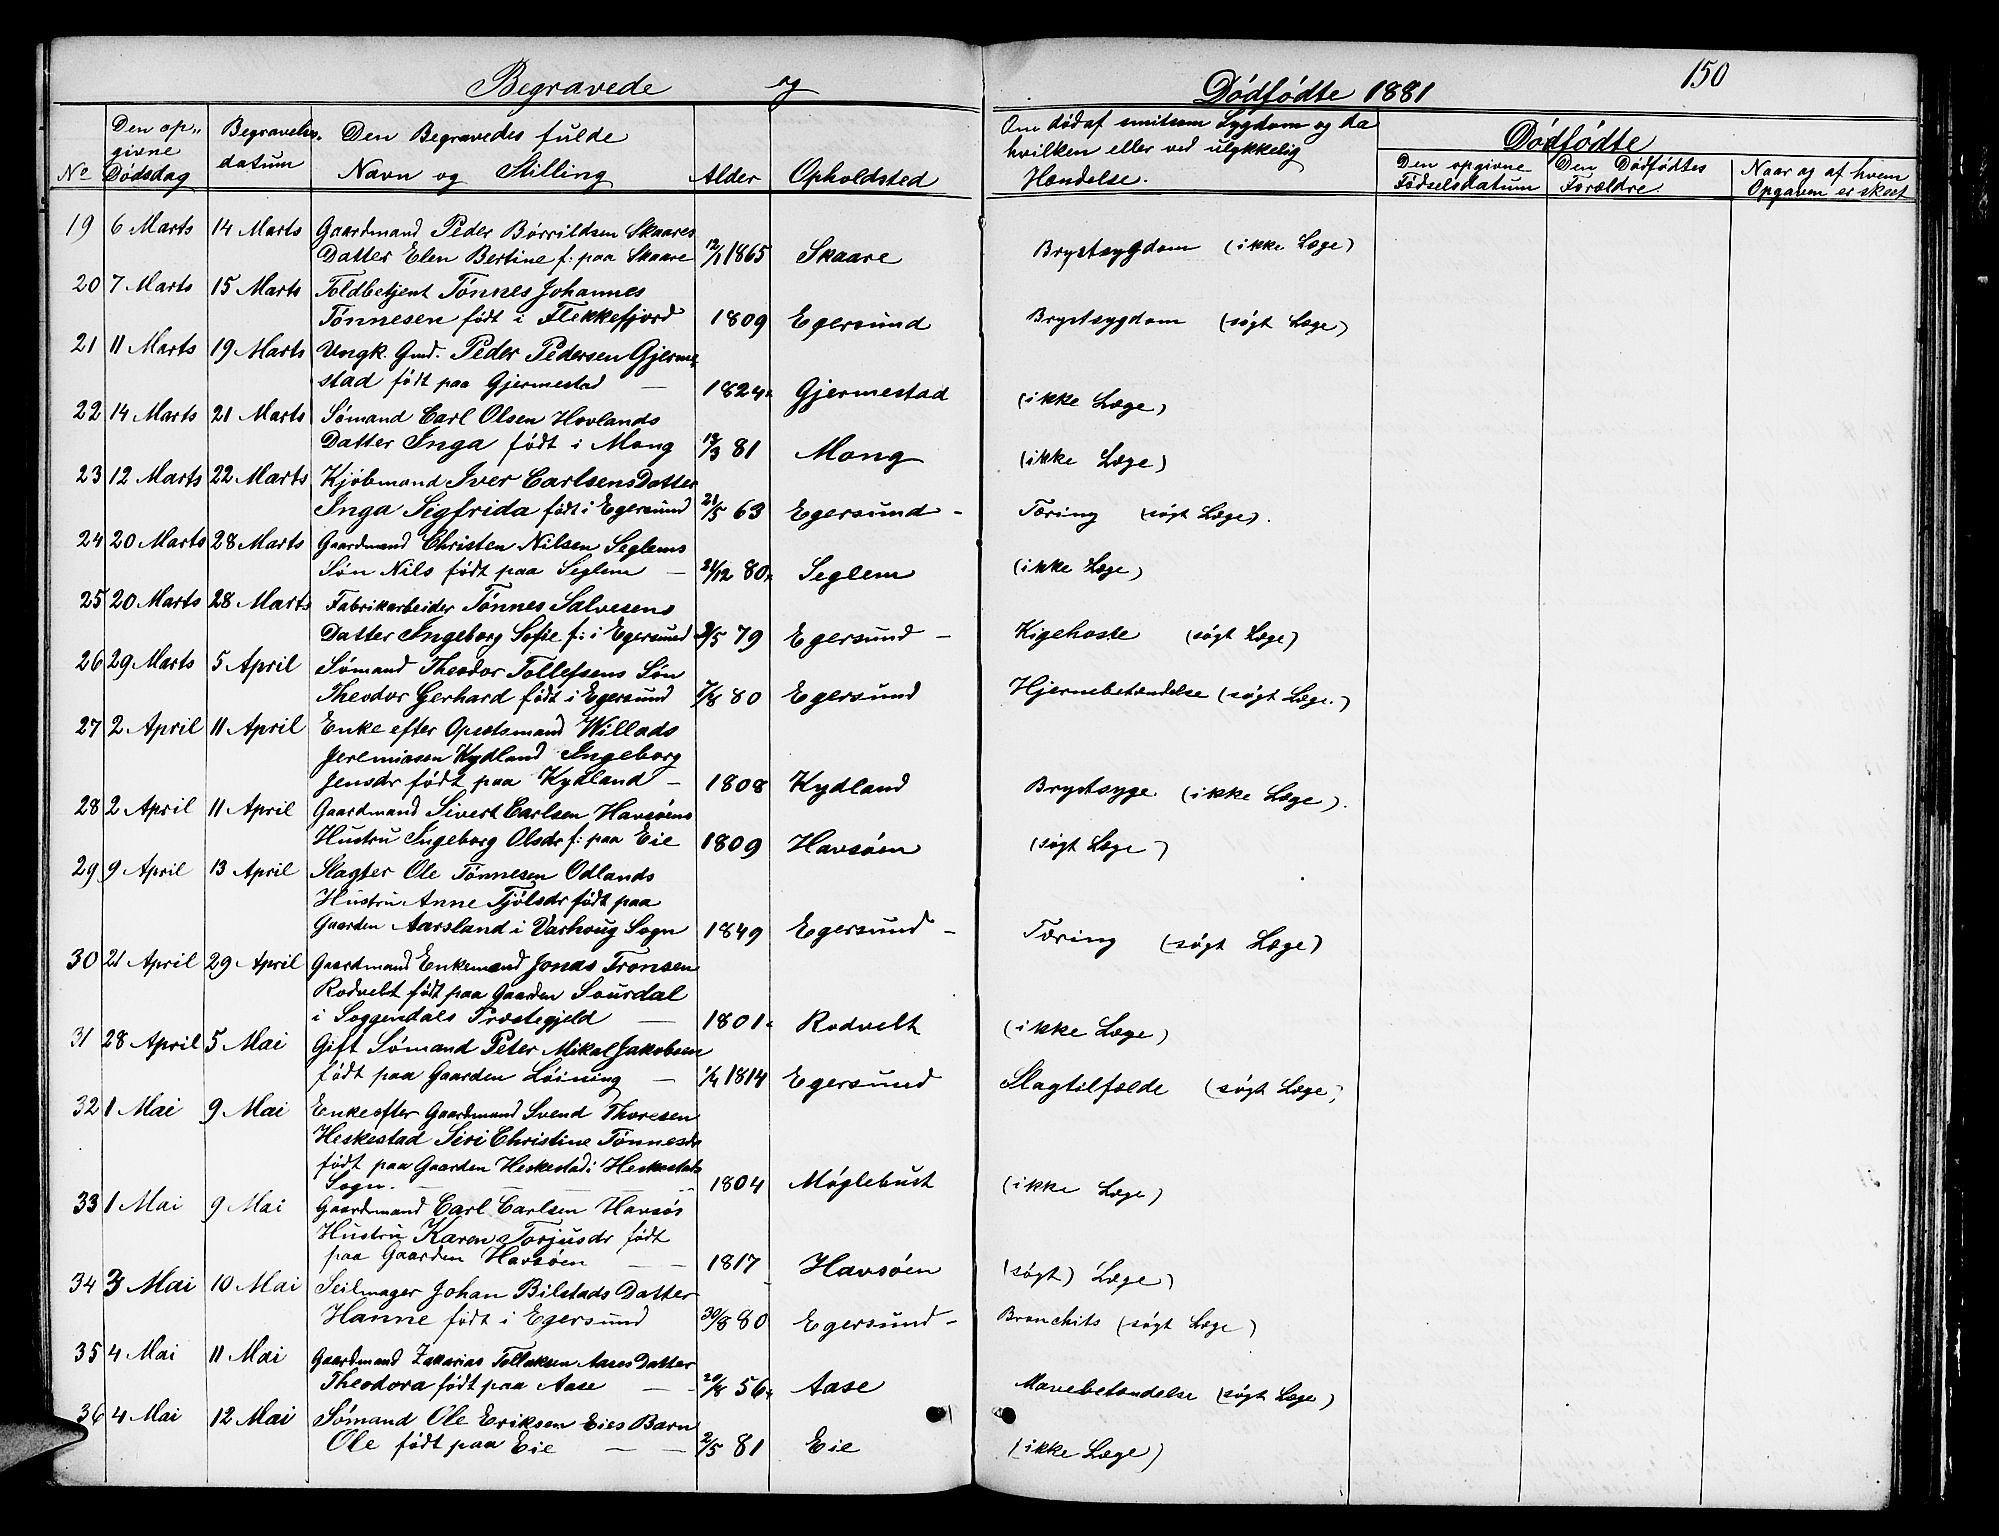 150
Begravede og Dödfödte 1881
No
Den op„ givne Dödsdag
Begravelses datum
Den Begravedes fulde Navn og Stilling
Alder
Opholdsted
Om död af smitsom Sygdom og da hvilken eller ved ulykkelig Hændelse.
Dödfödte
Den opgivne Födselsdatum
Den Dödfödtes Forældre.
Naar og af hvem Opgaven er skeet
19 6 Marts 14 Marts Gaardmand Peder Börrildsen Skaares
Datter Elen Bertine f: paa Skaare 12/1 1865 Skaare Brystsygdom (ikke Læge)
20 7 Marts 15 Marts Toldbetjent Tönnes Johannes
Tönnesen födt i Flekkefjord 1809 Egersund Brystsygdom (sögt Læge)
21 11 Marts 19 Marts Ungk. Gmd. Peder Pedersen Gjerme,
stad födt paa Gjermestad — 1824. Gjermestad (ikke Læge)
22 14 Marts 21 Marts Sömand Carl Olsen Hovlands
Datter Inga födt i Mong 12/3 81 Mong (ikke Læge)
23 12 Marts 22 Marts Kjöbmand Iver Carlsens Datter
Inga Sigfrida födt i Egersund 21/5 63 Egersund - Tæring (sögt Læge).
24 20 Marts 28 Marts Gaardmand Christen Nilsen Seglems
Sön Nils födt paa Seglem — 21/12 80. Seglem (ikke Læge)
25 20 Marts 28 Marts Fabrikarbeider Tönnes Salvesens
Datter Ingeborg Sofie f: i Egersund /5 79 Egersund — Kigehoste (sögt Læge)
26 29 Marts 5 April Sömand Theodor Tollefsens Sön
Theodor Gerhard födt i Egersund 7/8 80 Egersund Hjernebetændelse (sögt Læge.)
27 2 April 11 April Enke efter Opsetsmand Willads
Jeremiasen Kydland Ingeborg
Jensdr födt paa Kydland — 1808 Kydland Brystsyge. (ikke Læge).
28 2 April 11 April Gaardmand Sivert Carlsen Havsöens
Hustru Ingeborg Olsdr f: paa Eie 1809 Havsöen (sögt Læge)
29 9 April 13 April Slagter Ole Tönnesen Odlands
Hustru Anne Tjölsdr födt paa
Gaarden Aarsland i Varhoug Sogn 1849 Egersund — Tæring (sögt Læge)
30 21 April 29 April Gaardmand Enkemand Jonas Tronsen
Rodvelt födt paa Gaarden Svurdal
i Soggendals Præstegjeld — 1801. Rodvelt (ikke Læge)
31 28 April 5 Mai Gift Sömand Peter Mikal Jakobsen
födt paa Gaarden Löining — 1/4 1814 Egersund Slagtilfælde (sögt Læge)
32 1 Mai 9 Mai Enke efter Gaardmand Svend Thoresen
Heskestad Siri Christine Tönnesdr
födt paa Gaarden Heskestad i Heskestads
Sogn. — — — 1804 Möglebust (ikke Læge)
33 1 Mai 9 Mai Gaardmand Carl Carlsen Havsös
Hustru Karen Torjusdr födt
paa Gaarden Havsöen — — 1817 Havsöen (sögt) Læge)
34 3 Mai 10 Mai Seilmager Johan Bilstads Datter
Hanne födt i Egersund 30/8 80 Egersund — Bronchits (sögt Læge)
35 4 Mai 11 Mai Gaardmand Zakarias Tollaksen Aases Datter
Theodora födt paa Aase — - 20/8 56. Aase Mavebetændelse (sögt Læge)
36 4 Mai 12 Mai Sömand Ole Eriksen Eies Barn
Ole födt paa Eie — — 2/5 81 Eie (ikke Læge)